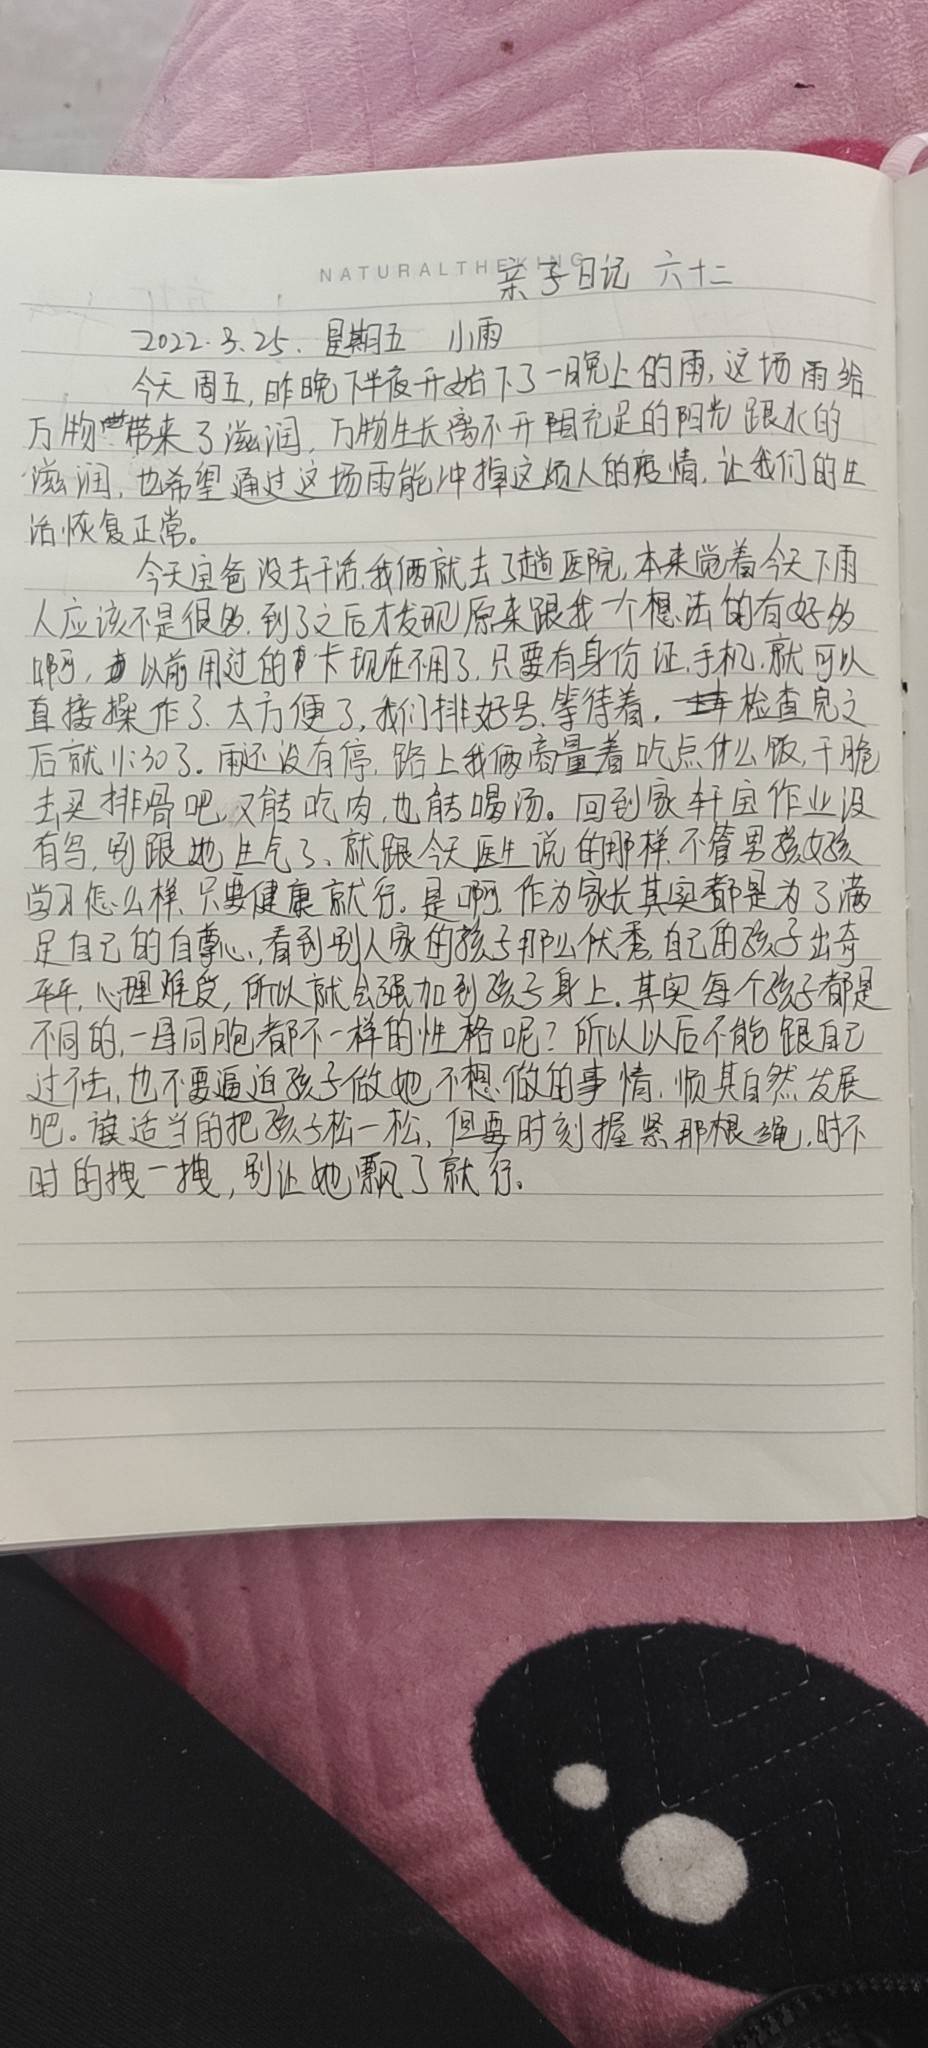 NATURALTHEKING
亲子日记 六十二
2022.3.25. 星期五 小雨
今天周五,昨晚下半夜开始下了一晚上的雨,这场雨给
万物带来了滋润,万物生长离不开充足的阳光跟水的
滋润,也希望通过这场雨能冲掉这烦人的疫情,让我们的生
活恢复正常。
今天宝爸没去干活,我俩就去了趟医院,本来觉着今天下雨
人应该不是很多,到了之后才发现原来跟我一个想法的有好多
啊,以前用过的卡现在不用了,只要有身份证、手机,就可以
直接操作了、太方便了,我们排好号、等待着,检查完之
后就11:30了。雨还没有停,路上我俩商量着吃点什么饭,干脆
去买排骨吧,又能吃肉,也能喝汤。回到家轩宝作业没
有写,别跟她生气了、就跟今天医生说的那样、不管男孩女孩
学习怎么样、只要健康就行。是啊,作为家长其实都是为了满
足自己的自尊心,看到别人家的孩子那么优秀,自己的孩子出奇
心理难受,所以就会强加到孩子身上,其实每个孩子都是
不同的,一母同胞都不一样的性格呢?所以以后不能跟自己
过不去,也不要逼迫孩子做她不想做的事情,顺其自然发展
吧。适当的把孩子松一松,但要时刻握紧那根绳,时不
时的拽一拽,别让她飘了就行。